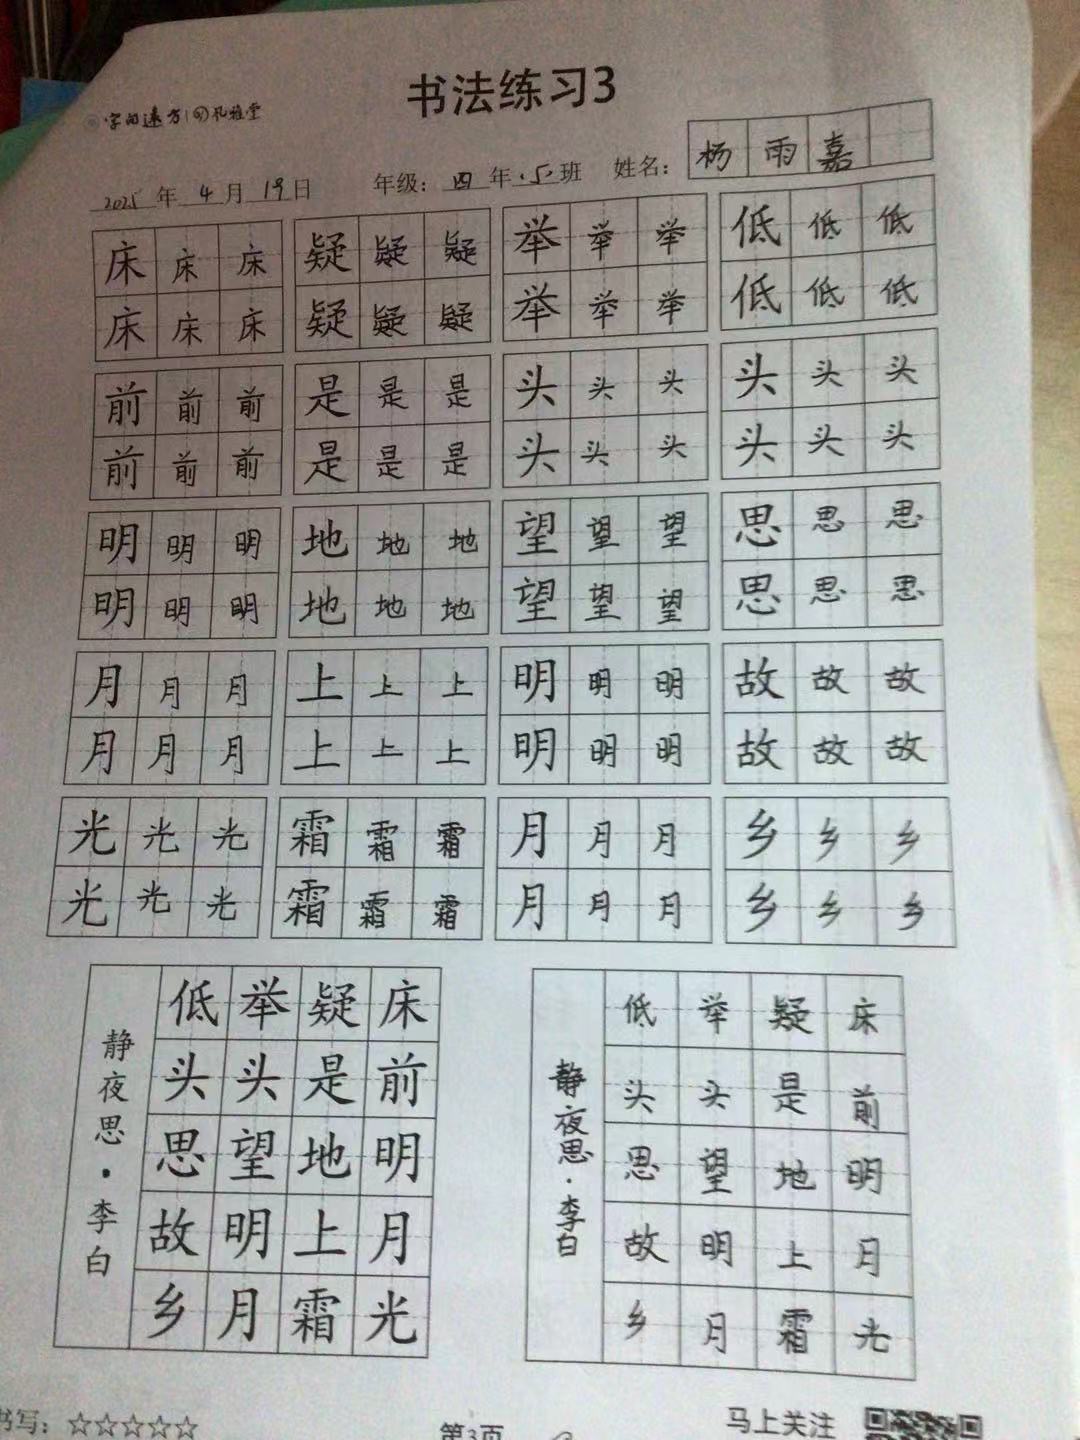 书法练习3
字的远方(四)孔雅堂
2025年4月19日 年级:四年.5班 姓名:杨雨嘉
床床床 疑疑疑 举举举 低低低
床床床 疑疑疑 举举举 低低低
前前前 是是是 头头头 头头头
前前前 是是是 头头头 头头头
明明明 地地地 望望望 思思思
明明明 地地地 望望望 思思思
月月月 上上上 明明明 故故故
月月月 上上上 明明明 故故故
光光光 霜霜霜 月月月 乡乡乡
光光光 霜霜霜 月月月 乡乡乡
床前明月光
疑是地上霜
举头望明月
低头思故乡
静夜思·李白
床前明月光
疑是地上霜
举头望明月
低头思故乡
静夜思·李白
书写:☆☆☆☆☆ 第3页 马上关注